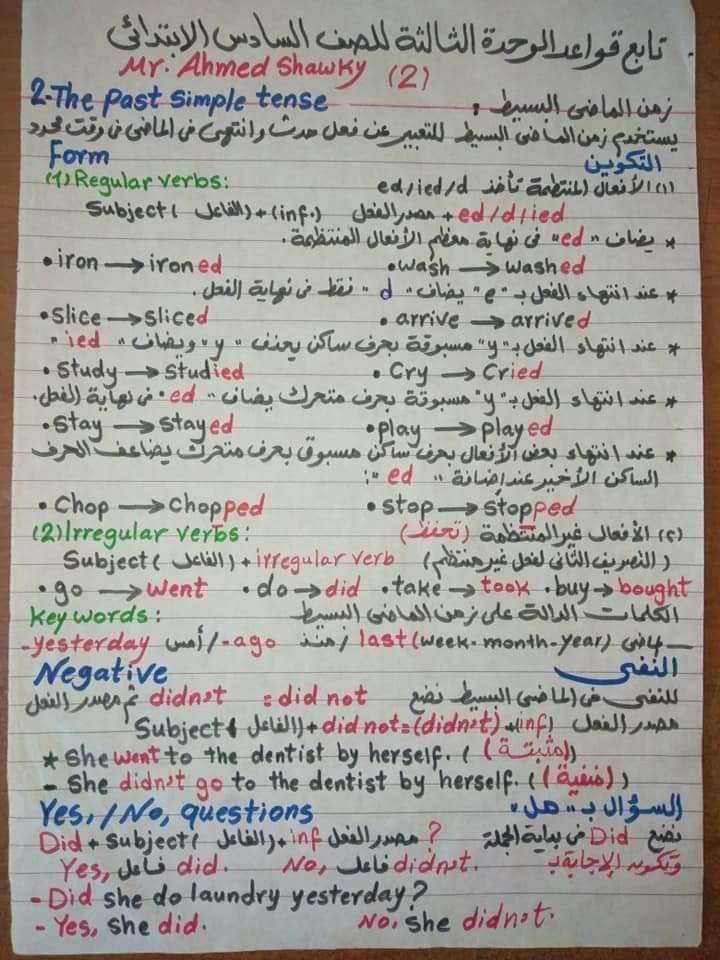 تابع قواعد الوحدة الثالثة للصف السادس الابتدائى
Mr. Ahmed Shawky (2)
2-The Past Simple tense زمن الماضى البسيط :
يستخدم زمن الماضى البسيط للتعبير عن فعل حدث وانتهى فى الماضى فى وقت محدد
Form التكوين
(1) Regular verbs: (١) الأفعال المنتظمة تأخذ ed/ied/d
Subject (الفاعل) + (inf.) مصدر الفعل + ed/d/ied
* يضاف "ed" فى نهاية معظم الأفعال المنتظمة.
• iron → ironed • wash → washed
* عند انتهاء الفعل بـ "e" يضاف "d" فقط فى نهاية الفعل.
• Slice → sliced • arrive → arrived
* عند انتهاء الفعل بـ "y" مسبوقة بحرف ساكن يحذف "y" ويضاف "ied"
• Study → studied • Cry → Cried
* عند انتهاء الفعل بـ "y" مسبوقة بحرف متحرك يضاف "ed" فى نهاية الفعل.
• Stay → stayed • play → played
* عند انتهاء بعض الأفعال بحرف ساكن مسبوق بحرف متحرك يضاعف الحرف
الساكن الأخير عند إضافة "ed":
• Chop → Chopped • stop → stopped
(2) Irregular verbs: (٢) الأفعال غير المنتظمة (تحفظ)
Subject (الفاعل) + irregular verb (التصريف الثانى لفعل غير منتظم)
• go → went • do → did • take → took • buy → bought
Key words: الكلمات الدالة على زمن الماضى البسيط
-yesterday أمس / -ago منذ / last (week-month-year) ماضى
Negative النفى
للنفى فى الماضى البسيط نضع didn't = did not ثم مصدر الفعل
Subject (الفاعل) + did not = (didn't) + (inf) مصدر الفعل
* She went to the dentist by herself. (مثبتة)
- She didn't go to the dentist by herself. (منفية)
Yes,/No, questions السؤال بـ "هل"
Did + Subject (الفاعل) + inf مصدر الفعل ? نضع Did فى بداية الجملة
Yes, فاعل did. No, فاعل didn't. وتكون الإجابة بـ
- Did she do laundry yesterday?
- Yes, she did. No, she didn't.